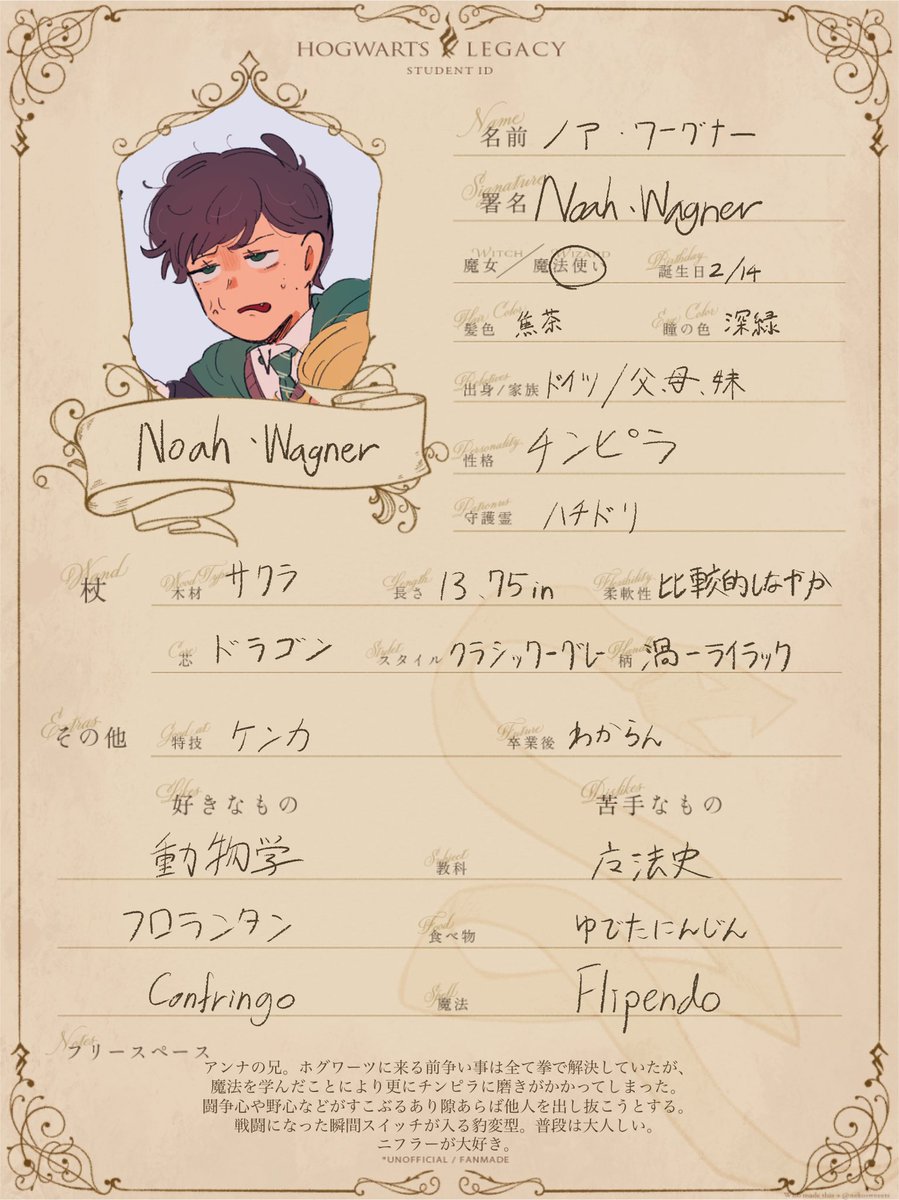 HOGWARTS LEGACY
STUDENT ID
Name
名前 ノア・ワーグナー
Signature
署名 Noah・Wagner
WITCH WIZARD Birthday
魔女／魔法使い 誕生日 2/14
Hair Color Eye Color
髪色 焦茶 瞳の色 深緑
Relatives
出身/家族 ドイツ/父、母、妹
Noah・Wagner
Personality
性格 チンピラ
Patronus
守護霊 ハチドリ
Wand Wood Type Length Flexibility
杖 木材 サクラ 長さ 13.75in 柔軟性 比較的しなやか
Core Styles Handle
芯 ドラゴン スタイル クラシックーグレー 柄 渦ーライラック
Extras Good at Future
その他 特技 ケンカ 卒業後 わからん
Likes Dislikes
好きなもの 苦手なもの
Subject
動物学 教科 広法史
Food
フロランタン 食べ物 ゆでたにんじん
Spell
Confringo 魔法 Flipendo
Notes
フリースペース
アンナの兄。ホグワーツに来る前争い事は全て拳で解決していたが、
魔法を学んだことにより更にチンピラに磨きがかかってしまった。
闘争心や野心などがすこぶるあり隙あらば他人を出し抜こうとする。
戦闘になった瞬間スイッチが入る豹変型。普段は大人しい。
ニフラーが大好き。
*UNOFFICIAL / FANMADE